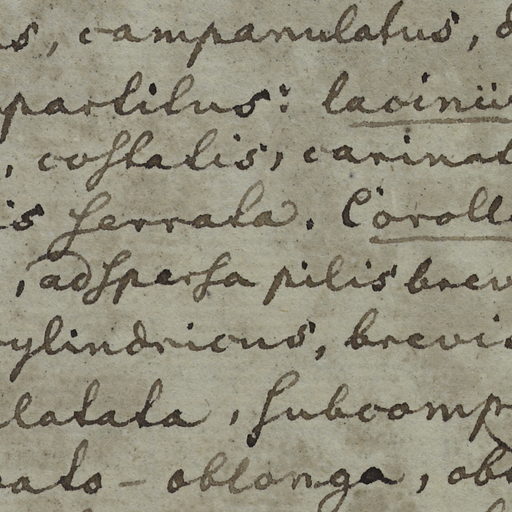 s, campanulatus,
partitus: lacinii
, costatis, carinat
is serrata. Coroll
, adspersa pilis brev
cylindricus, brevi
latata, subcomp
ato-oblonga, ob